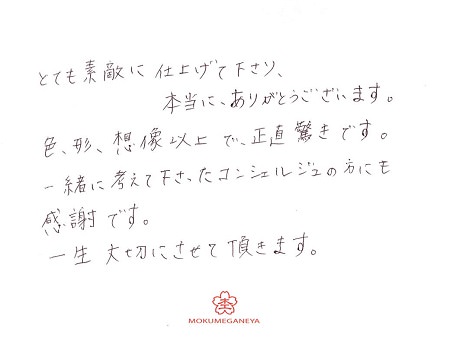 とても素敵に仕上げて下さり、
本当に、ありがとうございます。
色、形、想像以上で、正直驚きです。
一緒に考えて下さったコンシェルジュの方にも
感謝です。
一生大切にさせて頂きます。
杢
MOKUMEGANEYA